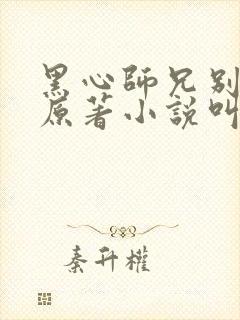 黑心師兄別
原著小說叫
秦升權